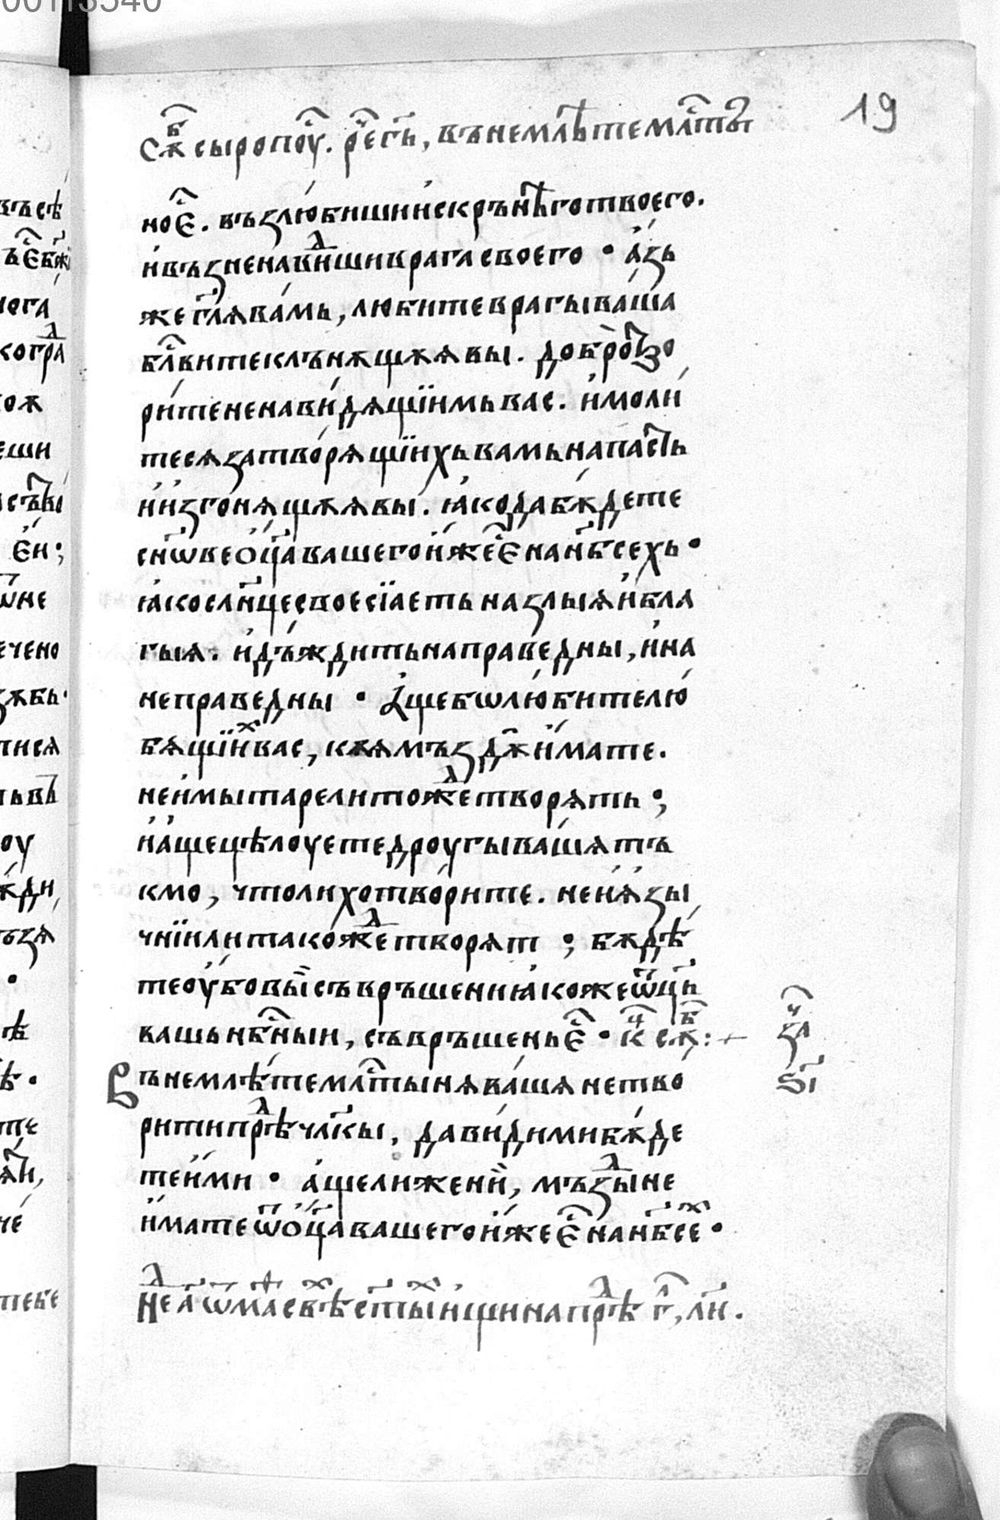 00113540
19
сѫ҇в сыропоу҇. ре҇ г҃ь, вънемлѣтемл҇тꙑ
ное҇. възлюбишиискрънѣготвоего.
ивъзненави́дшиврагасвоего · а́зь
жегл҃ѧва́мь, любитеврагыва́ша
бл҇витеклънѫщѫѧвы. доброт҇во
ри́тененави́дѧщїимьвас. и҆моли́
тесѧзатво́рѧщїихьвамьнапа́сть
и҆и҆згонѧщѫѧвы́. ꙗ҆кодабѫ́дете
сн҃ѡвеѻц҃авашегои҆жее҇нан҃бсехь ·
ꙗ҆косл҃нцесвоесїаетьназлыѧи҆бла
гыѧ. и҆дъждитьнаправе́дны, и҆на
неправе́дны · а҆щебѡлю́бителю́
бѧщїи҆хвас, каѧмъздж҇и́мате.
неи҆мытарелитождетворѧть ;
и҆а҆щецѣлоуетедроугыва́шѧтъ
кмо, чтолихотво́рите. неи҆ѧ҆зы́
чнїилитако́ждетворѧт ; бѫдѣ́
теоубовы̀съвръшениꙗ҆кожеѡ҃ц҃ь
вашьнб҃ныи, съвръшенье҇ · к҇ц сѫ҇в :+
за҇ч
ѕ҃і
Вънемлѣтемл҇тынѧва́шѧнетво
ритипрⷣѣчл҃кы, дави́димибѫ́де
теи҆ми · а҆щелижени̏, мъзды́не
и҆матеѿѻц҃авашегои҆жее҇нан҃бсех ·
Неⷣ а҃ ѿмаѳ҇ свⷯѣст҃ыⷯи҆щинапрⷣѣ г҇л, лн҃.